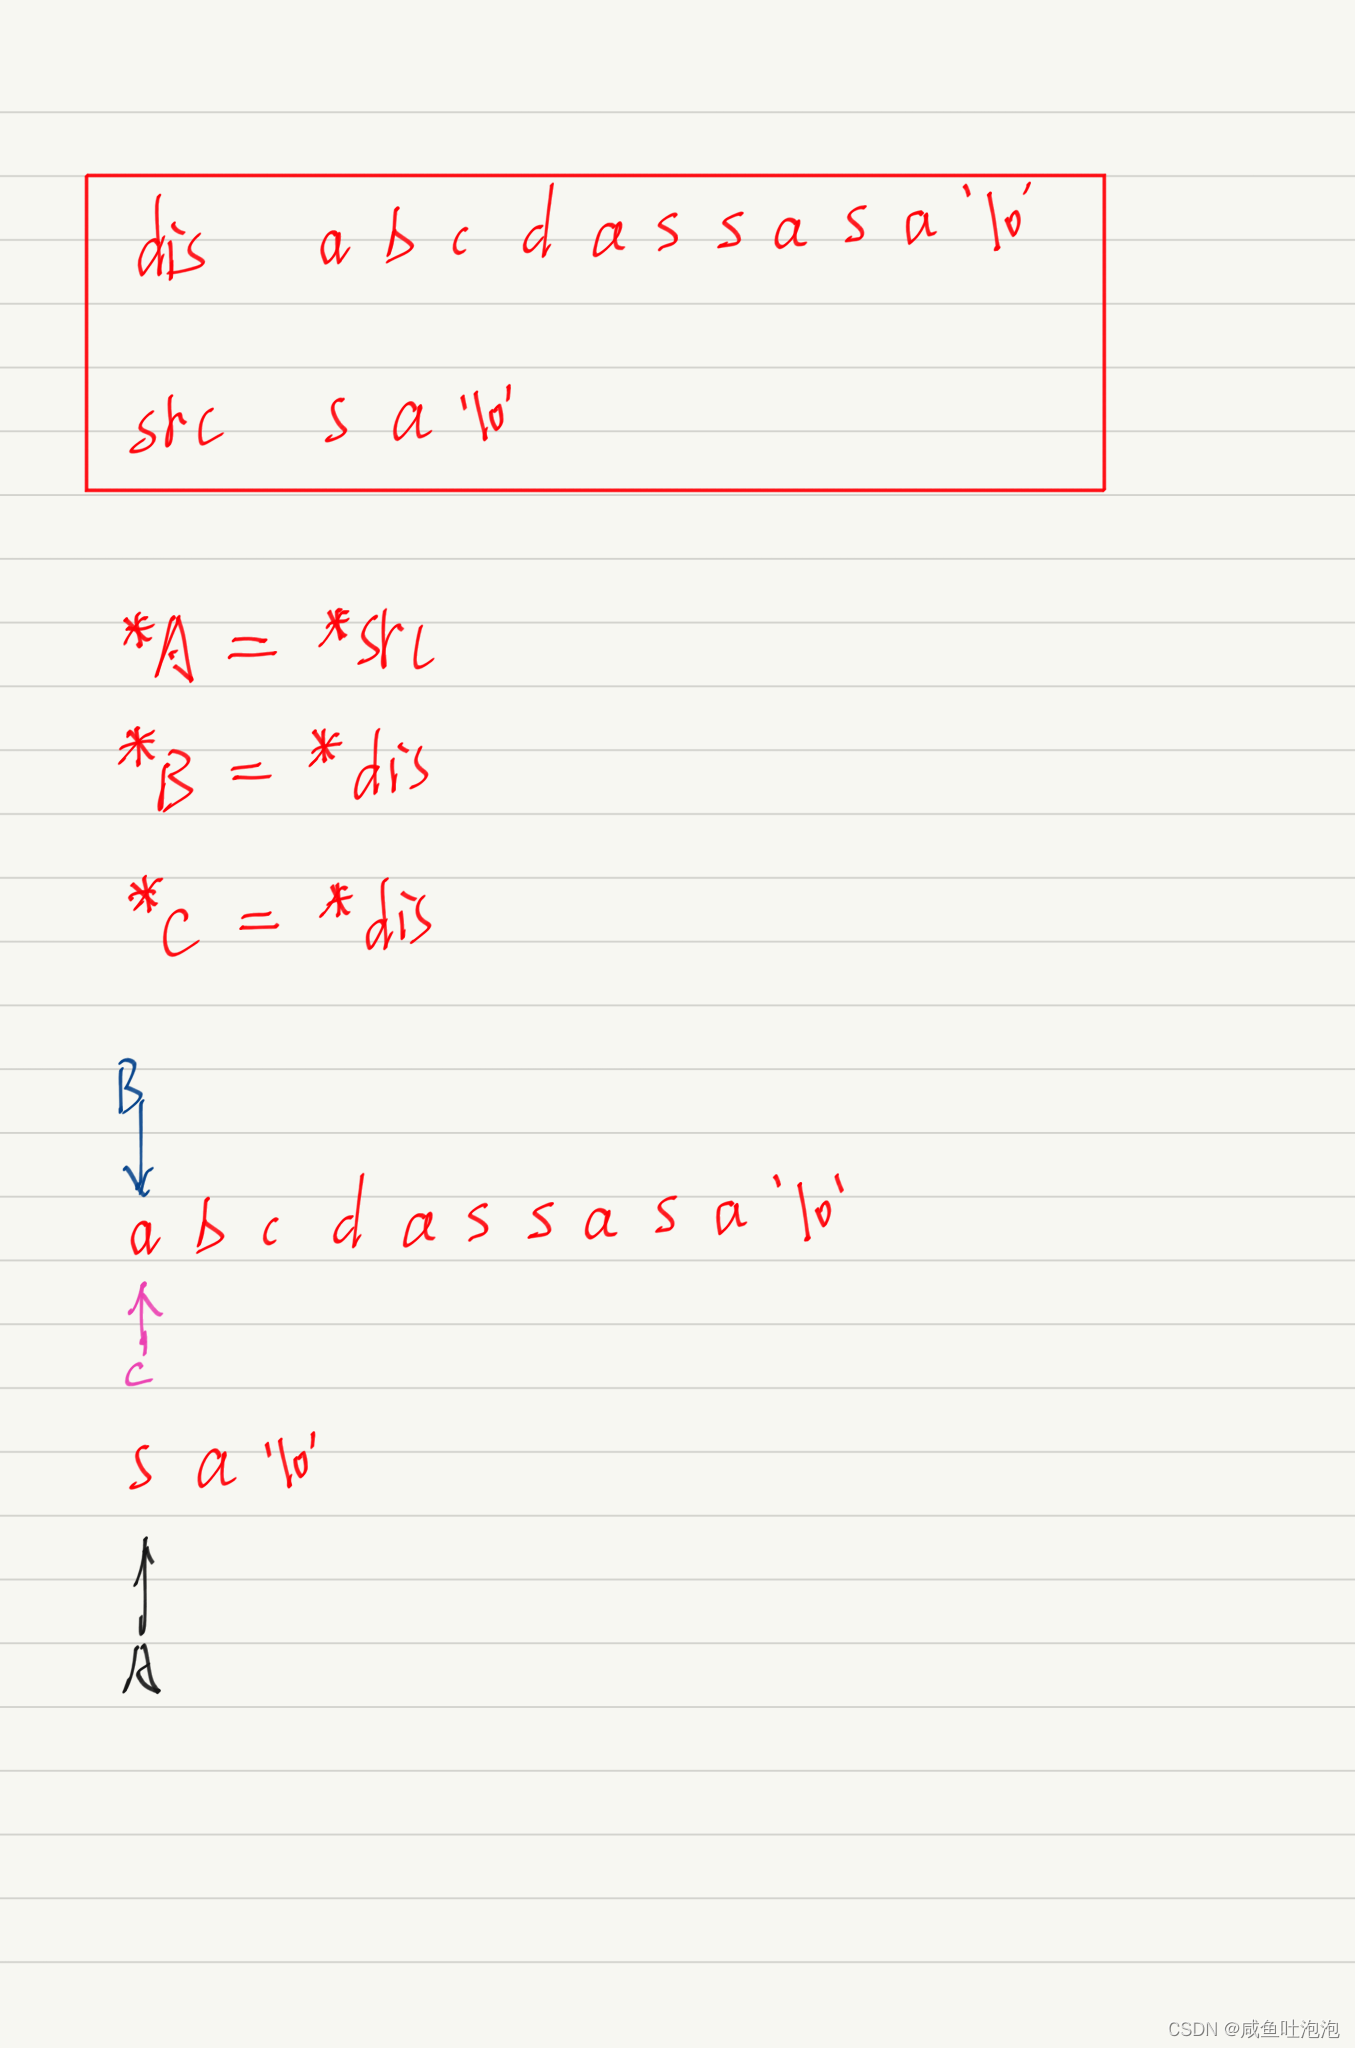 dis a b c d a s s a s a '\0'
src s a '\0'
*A = *src
*B = *dis
*C = *dis
B
a b c d a s s a s a '\0'
C
s a '\0'
A
CSDN @咸鱼吐泡泡